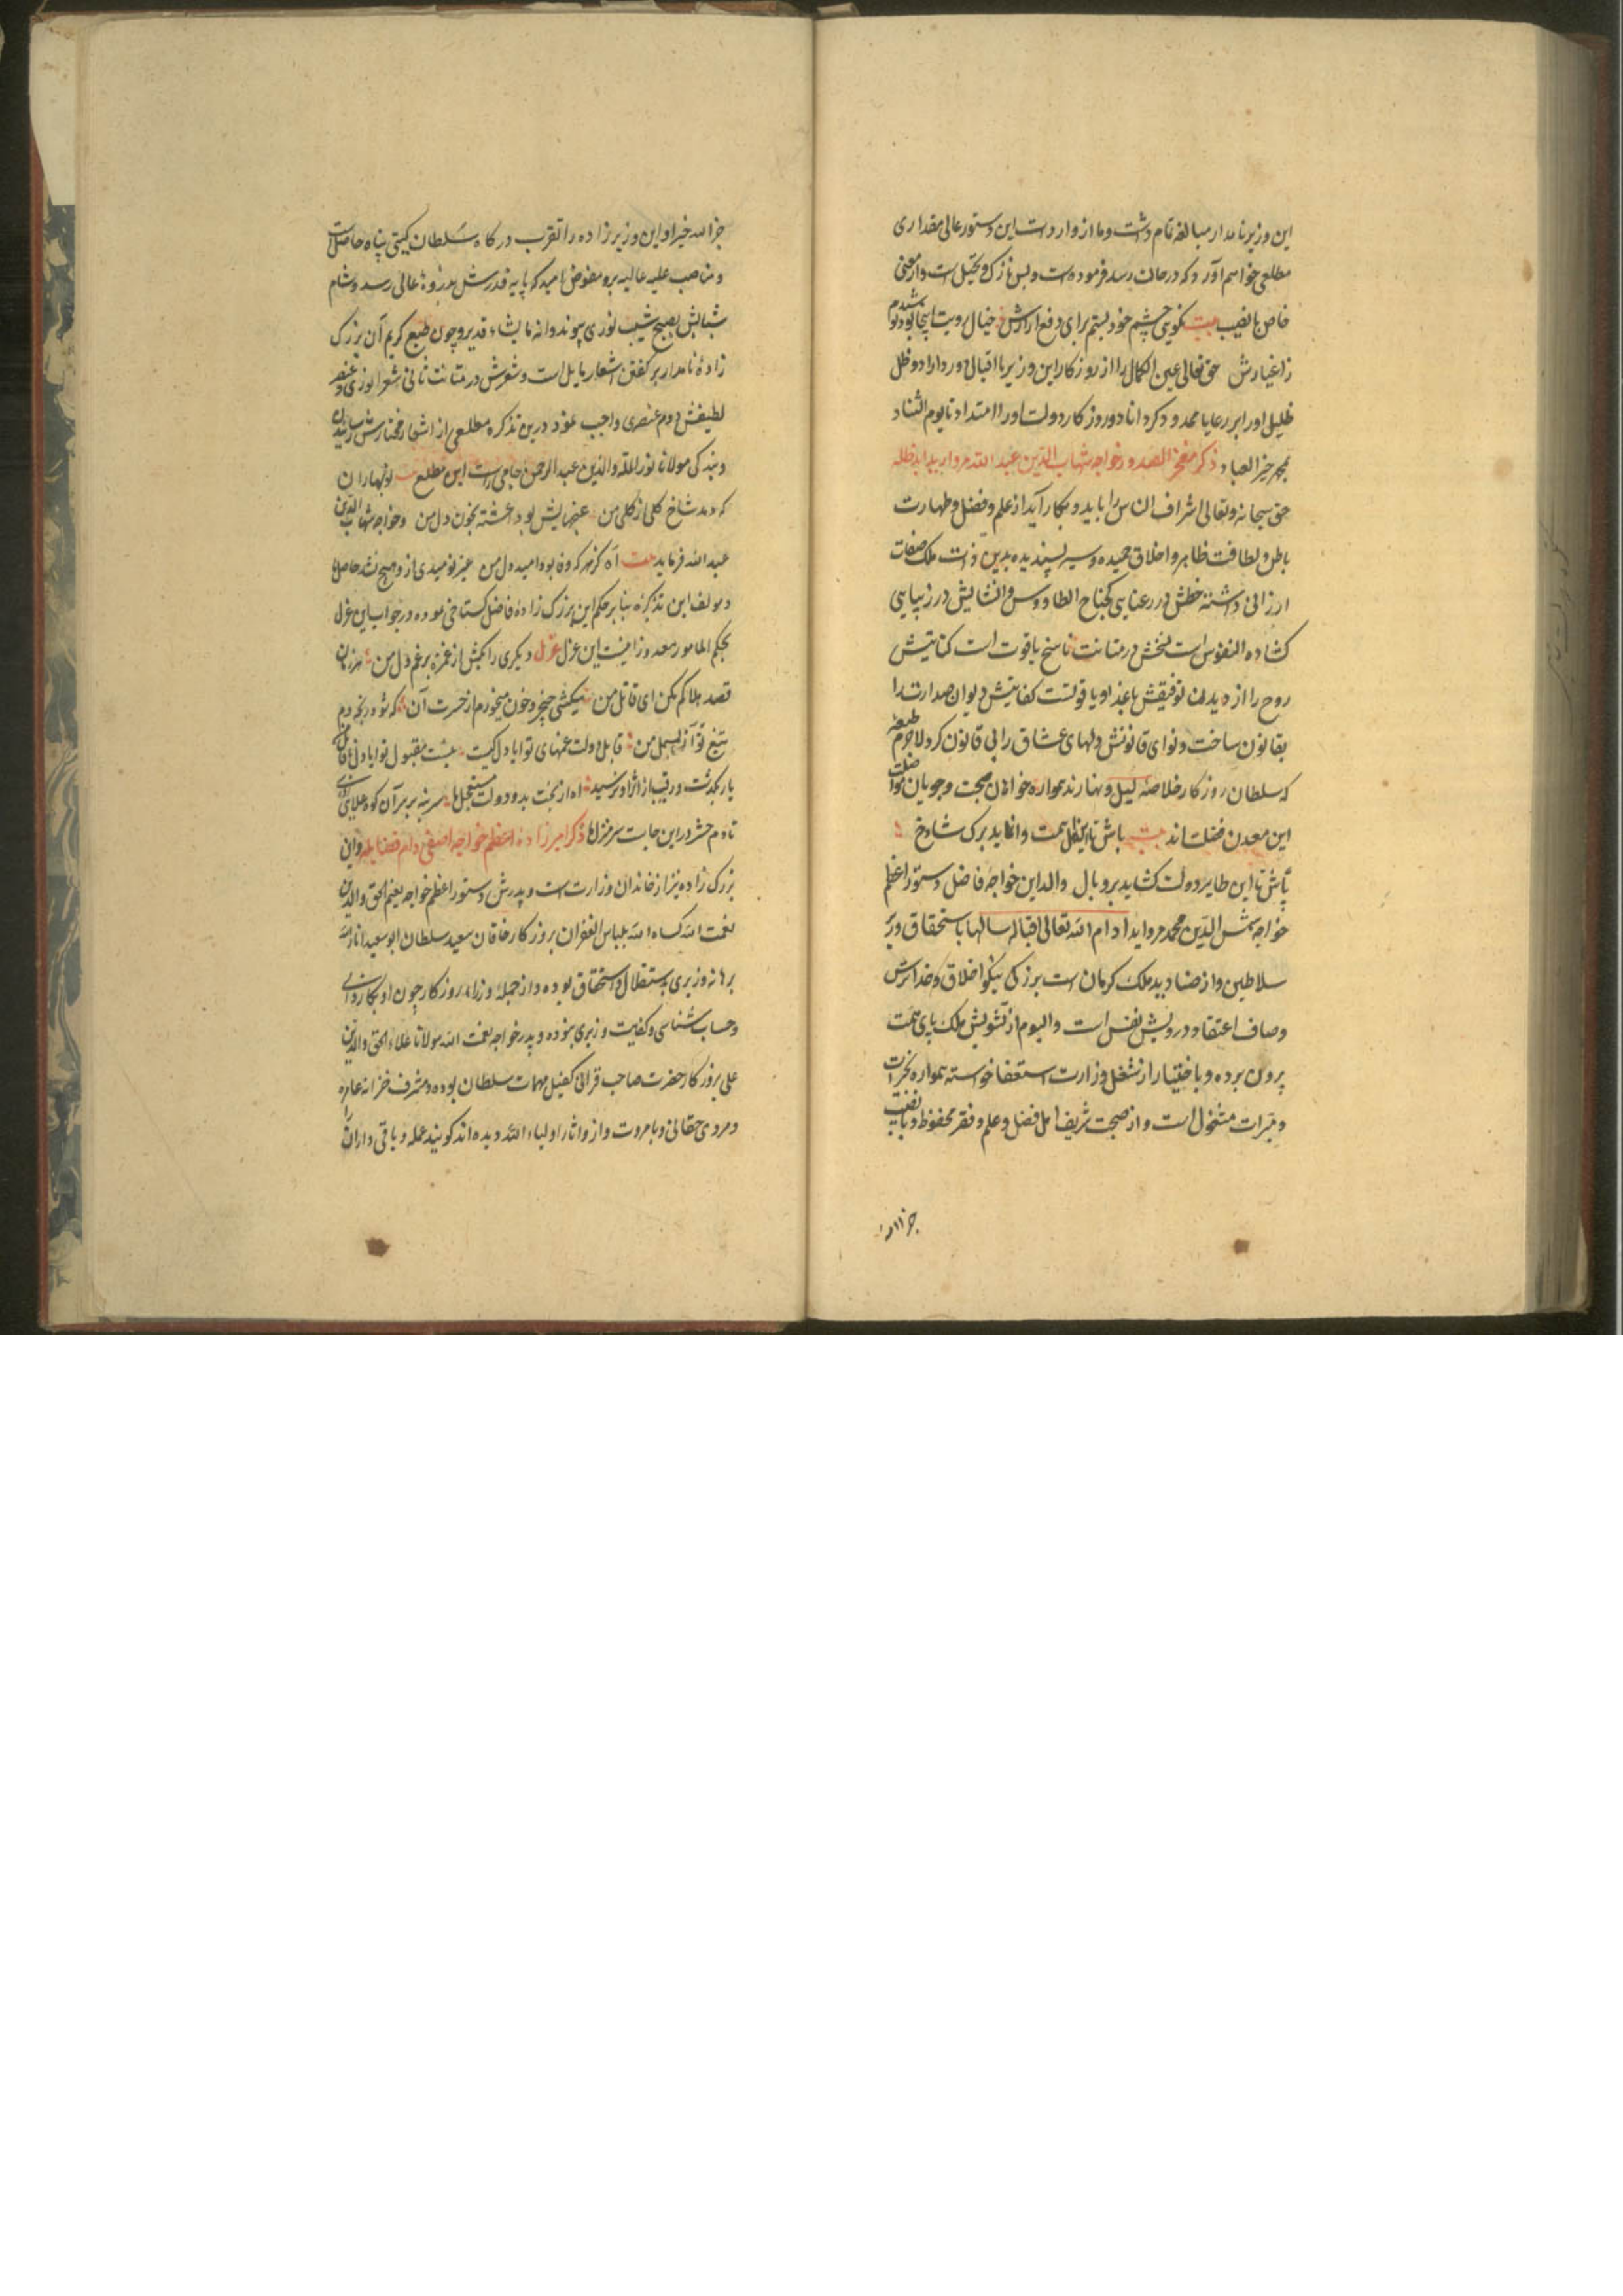 این وزیر نامدار مبالغه تمام داشت و ما از واردات این دستور عالی مقداری
مطلعی خواهم آورد که در حالت رمد فرموده است و بس نازک و تخیل است و از معنی
خاص با نصیب بیت بکویی چشم خود بستم برای دفع ازارش خیال رویت اینجا بود
ز اغیارش حق تعالی عین الکمال را از روزکار این وزیر با اقبال دور داراد و ظل
ظلیل او را بر رعایا ممدود کرداناد و روزکار دولت او را امتداد تا یوم التناد
بمحمد خیر العباد ذکر مفخر الصدور خواجه شهاب الدین عبد الله مروارید
حق سبحانه و تعالی اشراف الناس را باید و بکار آید از علم و فضل و طهارت
باطن و لطافت ظاهر و اخلاق حمیده و سیر پسندیده بدین ذات ملک صفات
ارزانی داشته خطش در رعنایی کجناح الطاووس و انشایش در زیبایی
کشاده النفوس است سخنش در متانت ناسخ یاقوت است کتابتش
روح را از دیدن توفیقش کفایتش دیوان صدارت را
بقانون ساخت و نوای قانونش دلهای عشاق را بی قانون کرد لاجرم
که سلطان روزکار خلاصه لیل و نهارند همواره خواهان صحبت و جویان
این معدن فضلت اند بیت باش تا این نخل همت وا نماید برک شاخ
باش تا این طایر دولت کشاید پر و بال والد این خواجه فاضل دستور اعظم
خواجه شمس الدین محمد مروارید ادام الله تعالی اقباله سالها باستحقاق وزیر
سلاطین و از صنادید ملک کرمان است بزرکی نیکو اخلاق و خداترس
و صاف اعتقاد و درویش نفس است و الیوم از تشویش ملک پای همت
بیرون برده و باختیار از شغل وزارت استعفا خواسته همواره بخیرات
و مبرات مشغول است و از صحبت شریف اهل فضل و علم و فقر محفوظ و با نصیب
جزا الله
جزا الله خیرا و این وزیر زاده را تقرب درکاه سلطان کیتی پناه حاصل است
و مناصب علیه عالیه برو مفوض امید که پایه قدرش بذروه عالی رسد و شام
شبابش بصبح شیب نوری پیوندد انه ما یشاء قدیر و چون طبع کریم آن بزرک
زاده نامدار بر کفتن اشعار مایل است و شعرش در متانت ثانی شعر انوری و عنصر
لطیفش دوم عنصری واجب نمود درین تذکره مطلعی از اشعار مختارش
و بندکی مولانا نور الملة والدین عبد الرحمن جامی راست این مطلع نوبهاران
که دمد شاخ کلی از کل من غنچهایش بود اغشته بخون دل من و خواجه شهاب الدین
عبد الله فرماید بیت آه کز مهر که وفا بود امید دل من غیر نومیدی ازو هیچ نشد حاصل
و مولف این تذکره بنا بر حکم این بزرک زاده فاضل کستاخی نموده و در جواب این غزل
بحکم المامور معذور زافیت این غزل غزل دیکری را مکش از غمزه برغم دل من
قصد هلاکم مکن ای قاتل من میکشی خنجر و خون میخورم از حسرت آن که شود رنجه دم
تیغ تو از بسمل من قابل دولت غمهای تو ایا دل کیست نیست مقبول تو ایا دل
یار بکذشت و رقیب از اثر او نرسید اه از بخت بد و دولت مستعجل ما
تا دم حشر درین جاست سر منزل ما ذکر امیر زاده اعظم خواجه اصفی دام فضایله و این
بزرک زاده نیز از خاندان وزارت است و پدرش دستور اعظم خواجه نعیم الحق والدین
نعمت الله کساه الله بلباس الغفران بروزکار خاقان سعید سلطان ابو سعید انار الله
برهانه وزیری باستقلال و استحقاق بوده و از جمله وزراء روزکار چون او بکاردانی
و حساب شناسی و کفایت وزیری نبوده و پدر خواجه نعمت الله مولانا علاء الحق والدین
علی بروزکار حضرت صاحب قرانی کفیل مهمات سلطان بوده و مشرف خزانه عامره
و مردی حقانی و با مروت و از و اثار اولیاء الله دیده اند کویند عمله و باقی داران را